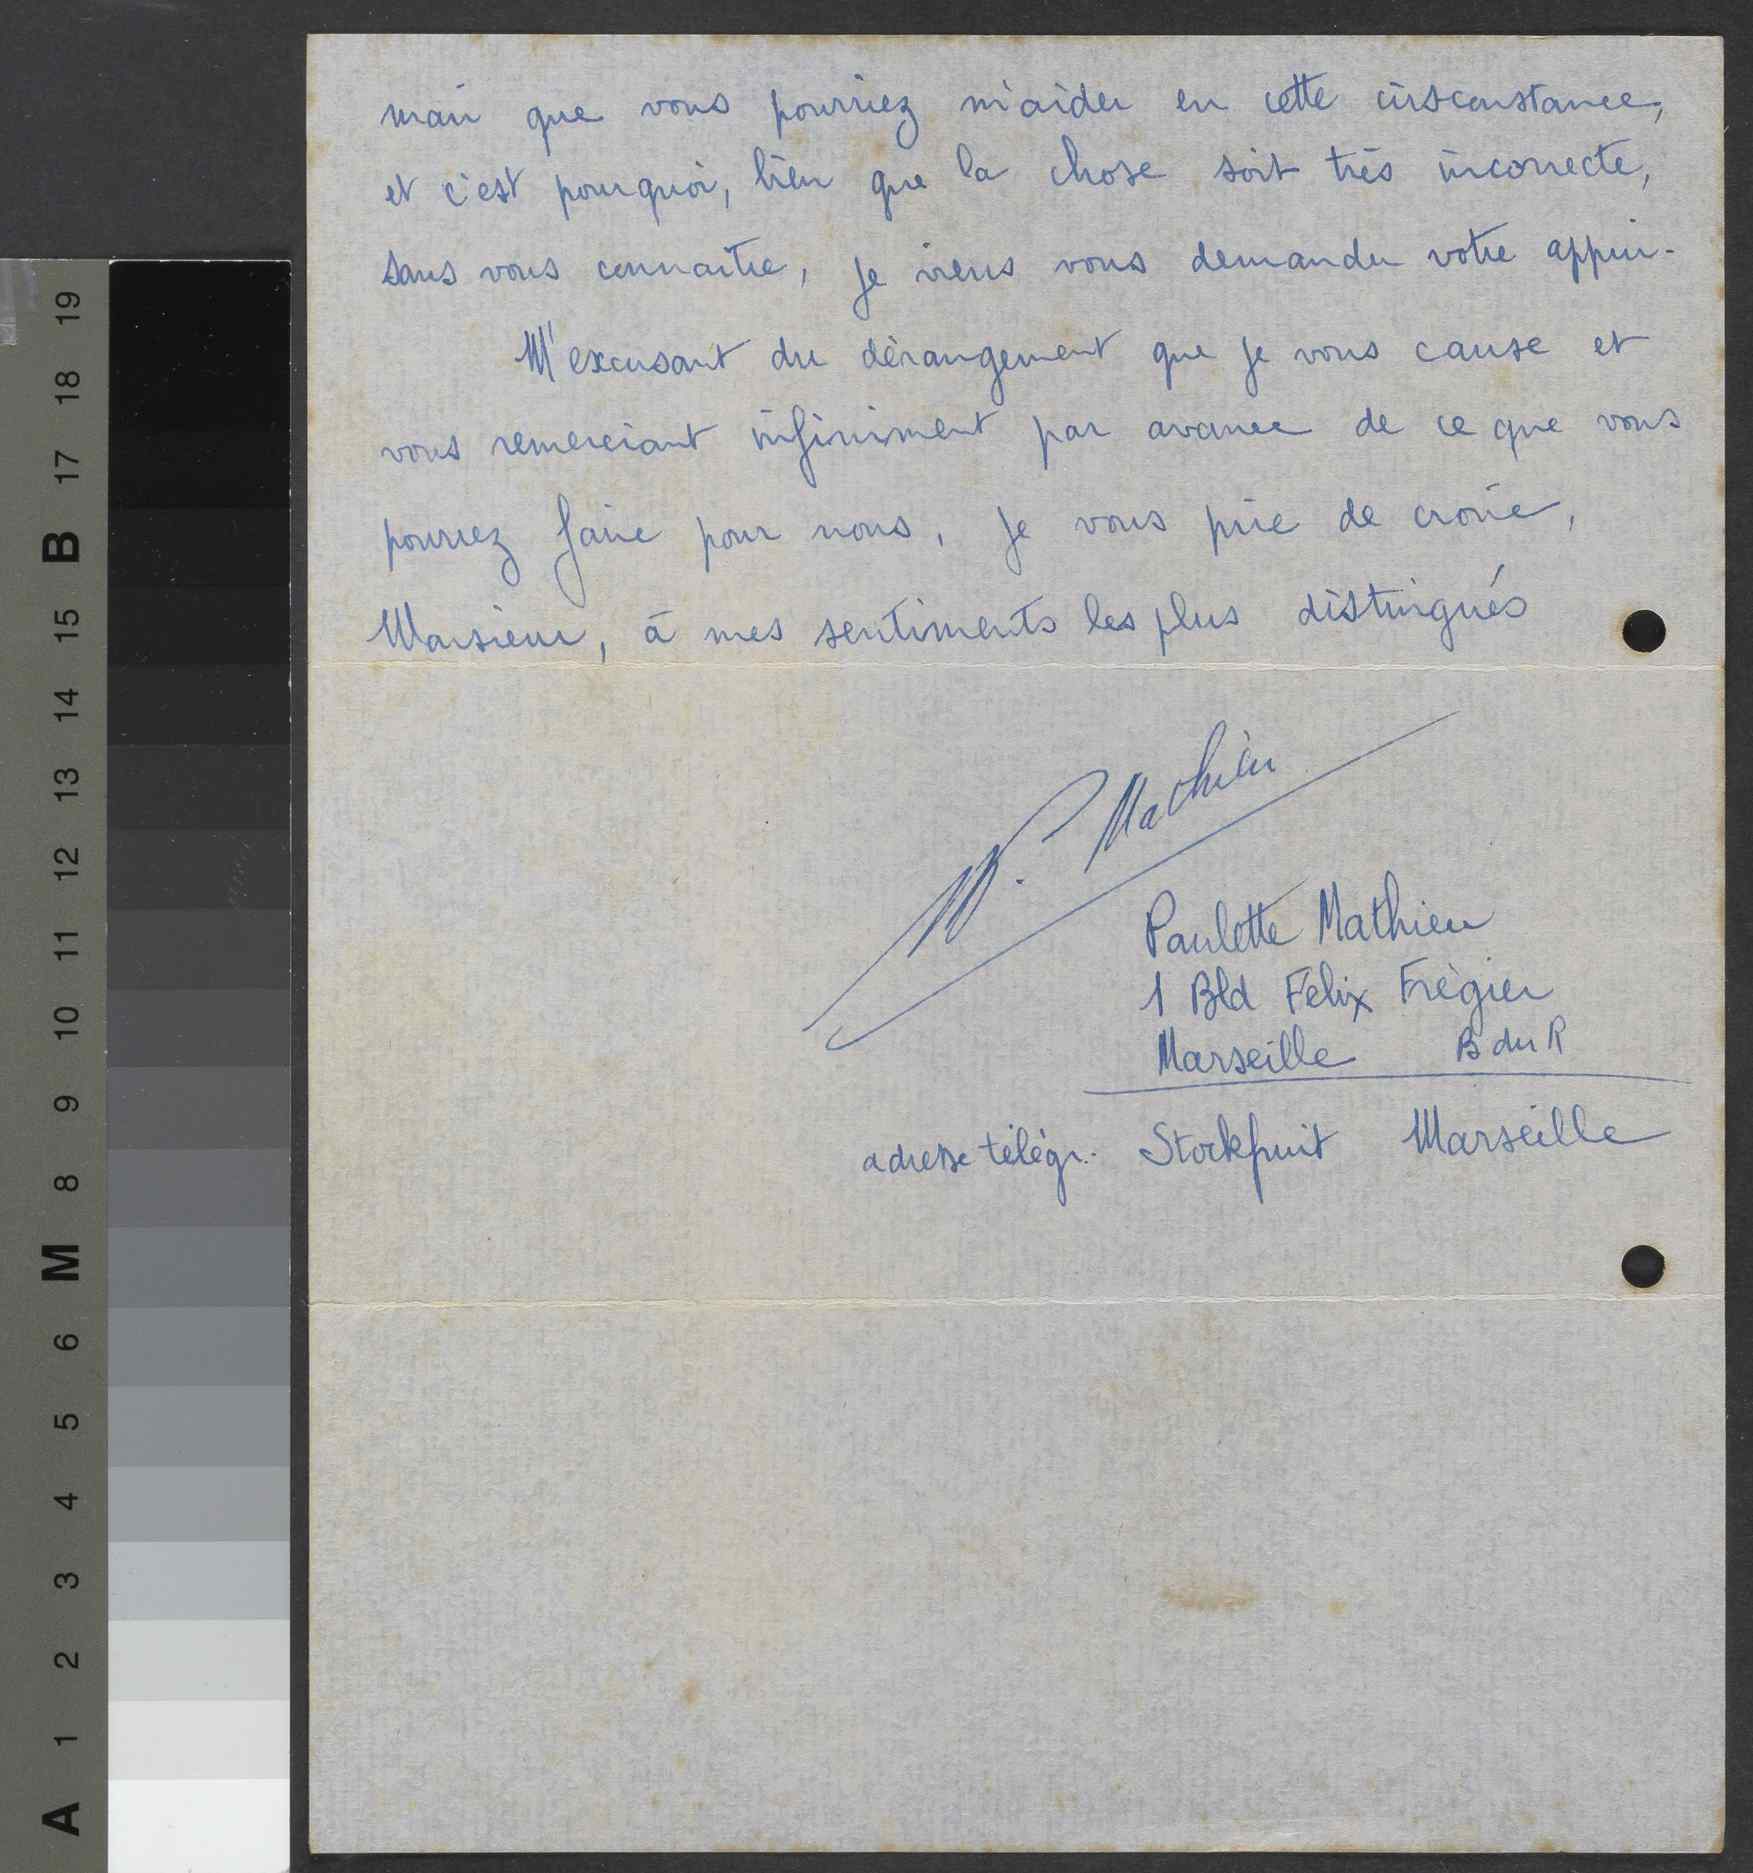 mari que vous pourriez m'aider en cette cirsconstance,
et c'est pourquoi, bien que la chose soit très incorrecte,
sans vous connaitre, je viens vous demander votre appui.
M'excusant du dérangement que je vous cause et
vous remerciant infiniment par avance de ce que vous
pourrez faire pour nous, je vous prie de croire,
Monsieur, à mes sentiments les plus distingués
P. Mathieu
Paulette Mathieu
1 Bld Félix Frégier
Marseille B du R
adresse télégr. Stockfruit Marseille
A 1 2 3 4 5 6 M 8 9 10 11 12 13 14 15 B 17 18 19